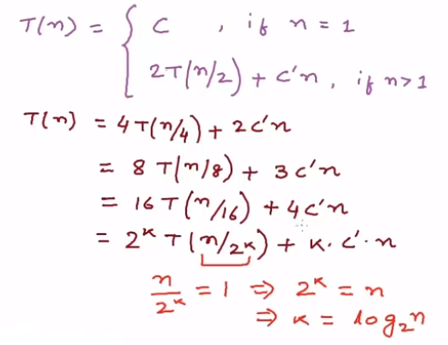 T(n) = { C , if n = 1
2T(n/2) + c'n, if n>1
T(n) = 4T(n/4) + 2c'n
= 8 T(n/8) + 3c'n
= 16 T(n/16) + 4c'n
= 2^k T(n/2^k) + k.c'.n
n/2^k = 1 ⇒ 2^k = n
⇒ k = log₂n